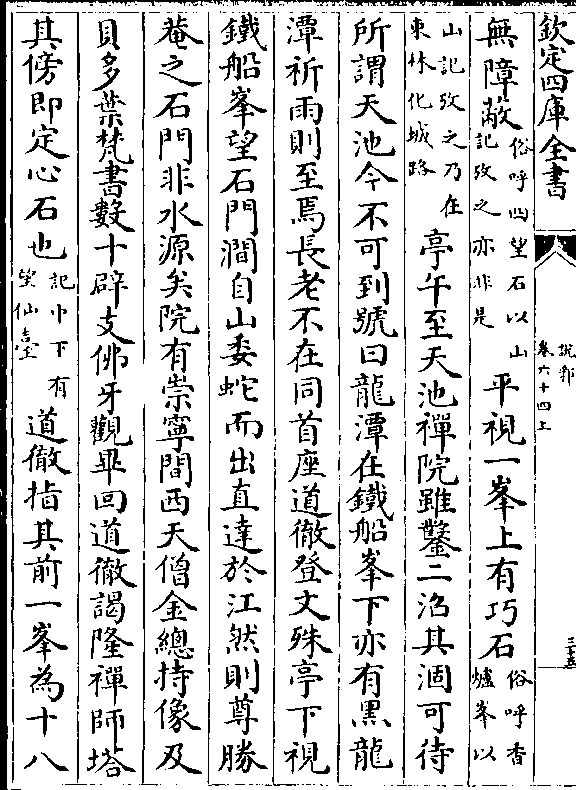 欽定四庫全書
說郛
卷六十四上
無障蔽俗呼四望石以山記攷之亦非是平視一峯上有巧石俗呼香爐峯以
山記攷之乃在東林化城路亭午至天池禪院雖鑿二沼其涸可待
所謂天池今不可到號曰龍潭在鐵船峯下亦有黑龍
潭祈雨則至焉長老不在同首座道徹登文殊亭下視
鐵船峯望石門澗自山委蛇而出直達於江然則尊勝
菴之石門非水源矣院有崇寧間西天僧金總持像及
貝多葉梵書數十辟支佛牙觀畢回道徹謁隆禪師塔
其傍即定心石也記中下有望仙臺道徹指其前一峯為十八